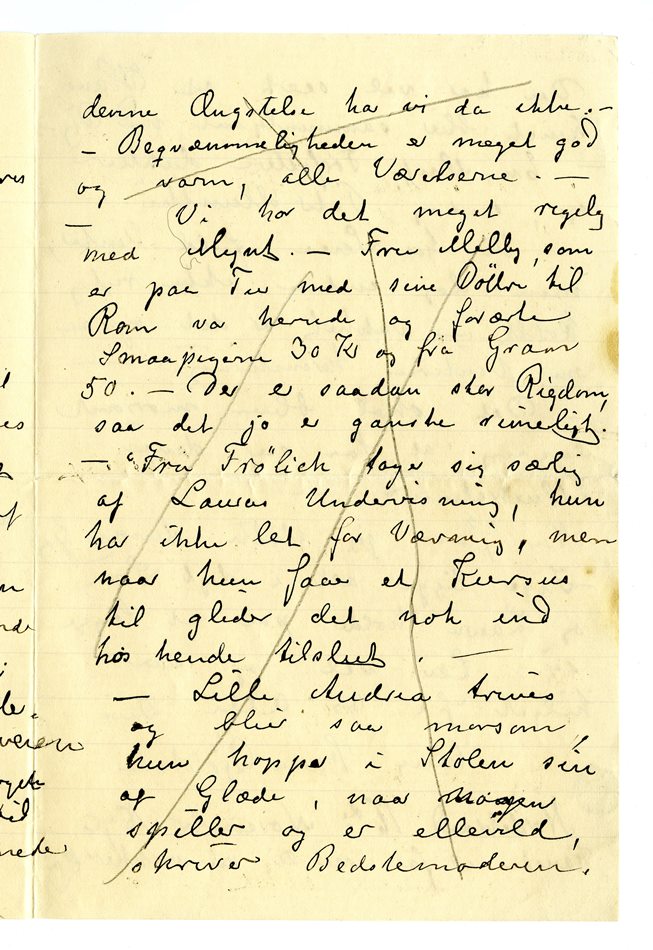 denne Ængstelse har vi da ikke. –
– Beqvæmmeligheden er meget god
og varm, alle Værelserne. –
– Vi har det meget rigelig
med Mynt. – Fru Melby, som
er paa Tur med sine Döttre til
Rom var herude og forærte
Smaapigerne 30 Kr og fra Gram
50. – Der er saadan stor Rigdom,
saa det jo er ganske rimeligt.
– "Fru Frölich tager sig særlig
af Lauras Undervisning, hun
har ikke let for Vævning, men
naar hun faar et Kursus
til glider det nok ind
hos hende tilslut. –
– Lille Andrea trives
og blir saa morsom,
hun hoppe i Stolen sin
af Glæde, naar nogen
spiller og er ellevild,
skriver Bedstemoderen.